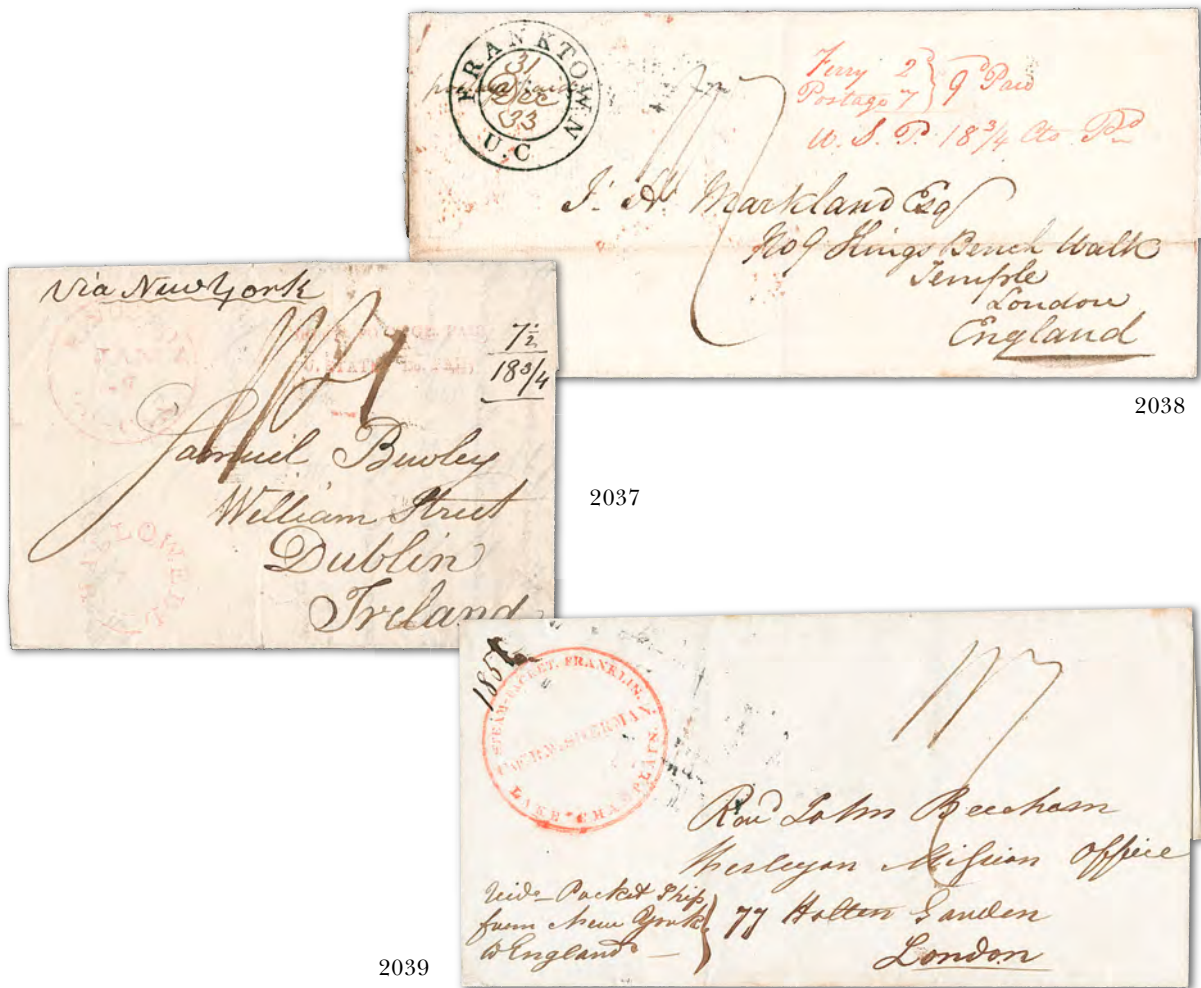 FRANKTOWN
31
Dec
33
U.C
Ferry 2
Postage 7 } 9d Paid
U. S. P. 18 3/4 Cts Pd
J. H. Markland Esq
No 9 Kings Bench Walk
Temple
London
England
2038
via New York
7 1/2
18 3/4
PAID
U. STATES Do. PAID
LOWELL
Samuel Bewley
William Street
Dublin
Ireland
2037
STEAM-PACKET, FRANKLIN.
R.W. SHERMAN
LAKE CHAMPLAIN.
Revd John Beecham
Wesleyan Mission Office
77 Hatten Garden
London
Packet Ship
from New York
to England
2039